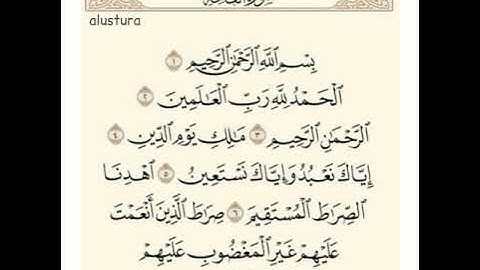 سورة الفاتحة
alustura
بِسْمِ ٱللَّهِ ٱلرَّحْمَٰنِ ٱلرَّحِيمِ ١
ٱلْحَمْدُ لِلَّهِ رَبِّ ٱلْعَٰلَمِينَ ٢
ٱلرَّحْمَٰنِ ٱلرَّحِيمِ ٣ مَٰلِكِ يَوْمِ ٱلدِّينِ ٤
إِيَّاكَ نَعْبُدُ وَإِيَّاكَ نَسْتَعِينُ ٥ ٱهْدِنَا
ٱلصِّرَٰطَ ٱلْمُسْتَقِيمَ ٦ صِرَٰطَ ٱلَّذِينَ أَنْعَمْتَ
عَلَيْهِمْ غَيْرِ ٱلْمَغْضُوبِ عَلَيْهِمْ